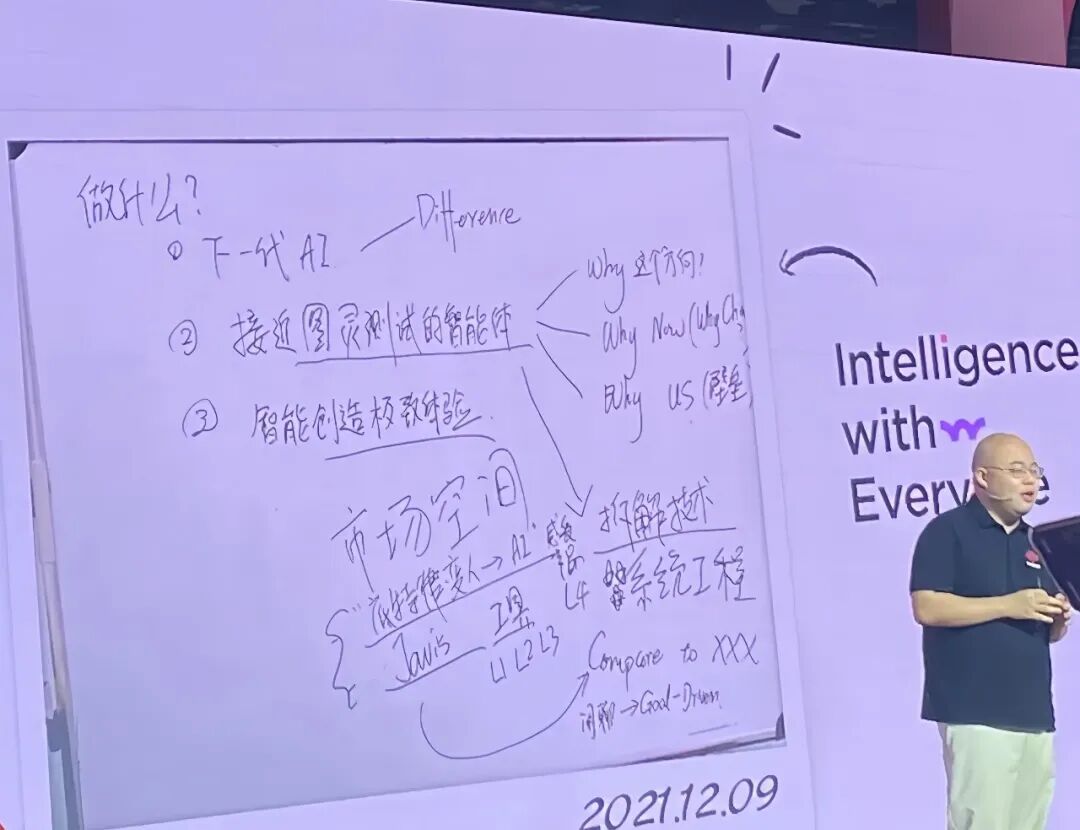 做什么?
① 下一代 AI — Difference
② 接近图灵测试的智能体
Why 这个方向?
Why Now (Why Ch
Why US (壁垒)
③ 智能创造极致体验.
市场空间
拆解技术
变人→AI
L4 系统工程
Javis 工具
L1 L2 L3
Compare to XXX
闲聊→Goal-Driven
2021.12.09
Intelligence
with
Every